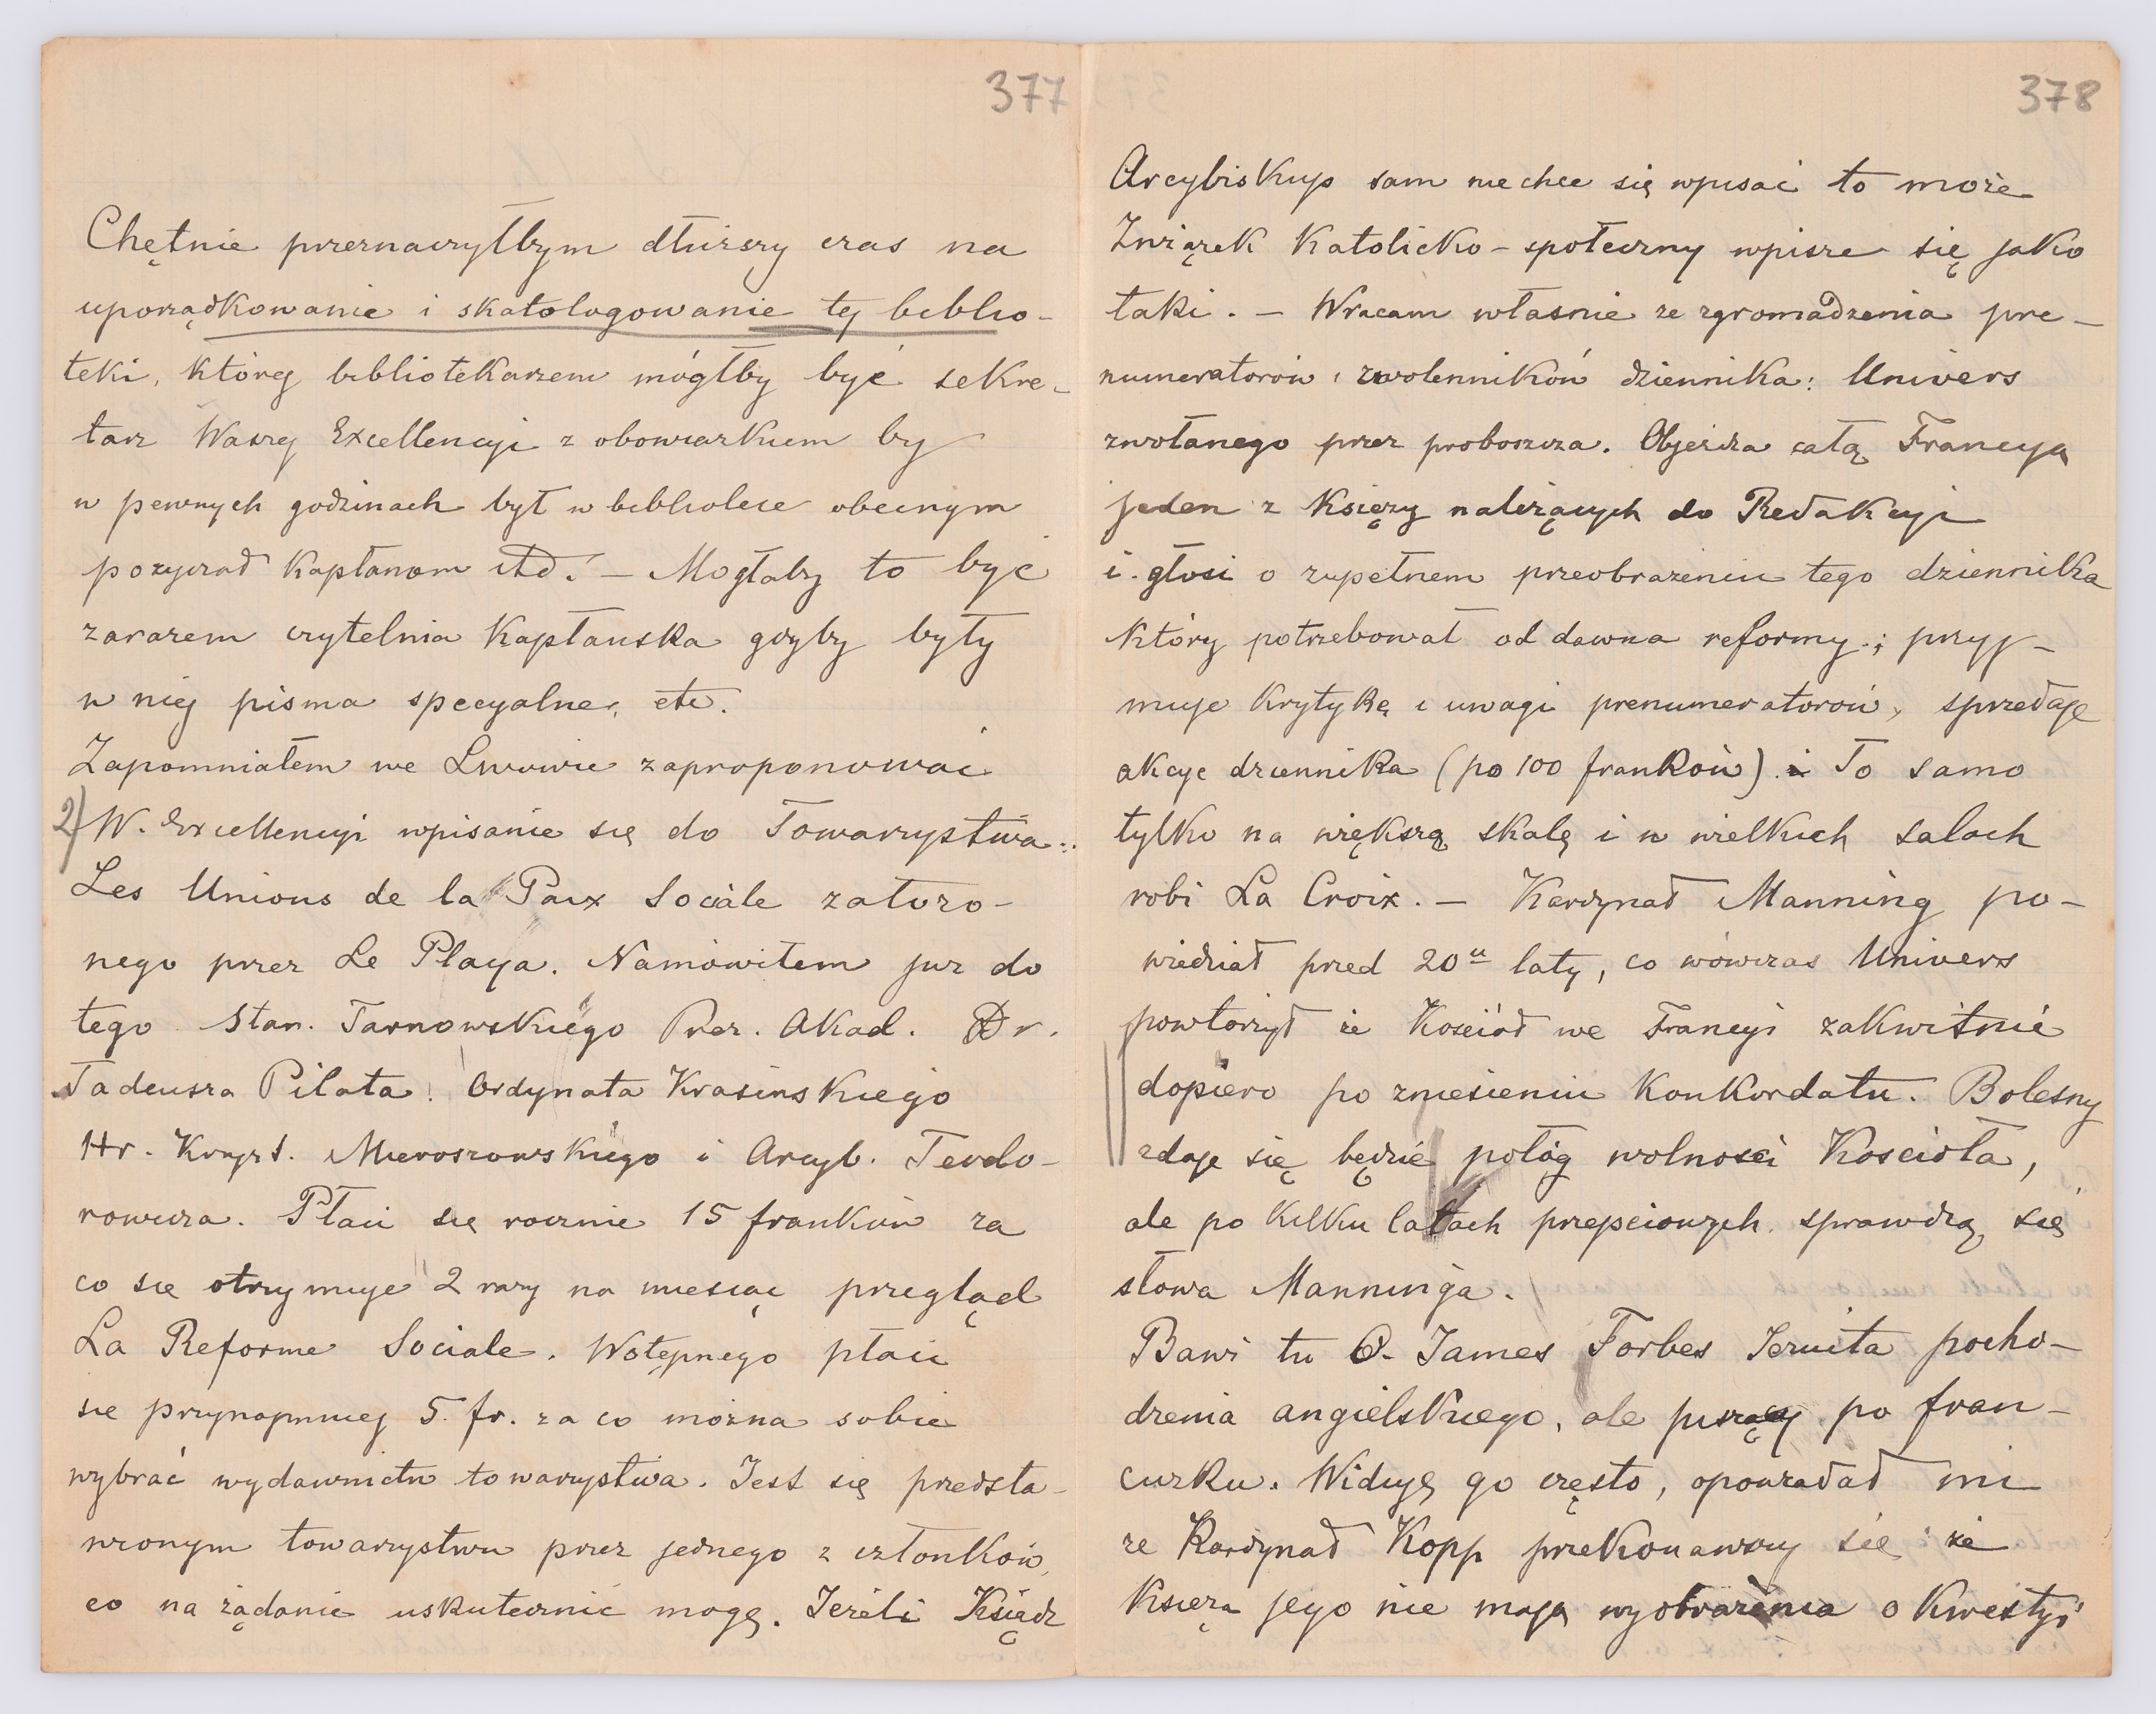 377
Chętnie przeznaczyłbym dłuższy czas na
uporządkowanie i skatologowanie tej biblio-
teki, której bibliotekarzem mógłby być sekre-
tarz Waszej Excellencyi z obowiazkiem by
w pewnych godzinach był w bibliotece obecnym
pożyczał Kapłanom itd. — Mogłaby to być
zarazem czytelnia Kapłańska gdyby były
w niej pisma specyalne, etc.
Zapomniałem we Lwowie zaproponować
2) W. Excellencyi wpisanie się do Towarzystwa:
Les Unions de la Paix Sociale założo-
nego przez Le Playa. Namówiłem już do
tego Stan. Tarnowskiego Prez. Akad. Dr.
Tadeusza Pilata, Ordynata Krasińskiego
Hr. Krzyszt. Mieroszowskiego i Arcyb. Teodo-
rowicza. Płaci się rocznie 15 franków za
co się otrzymuje 2 razy na miesiąc przegląd
La Reforme Sociale. Wstępnego płaci
się przynajmniej 5. fr. za co można sobie
wybrać wydawnictw towarzystwa. Jest się przedsta-
wionym towarzystwu przez jednego z członków,
co na żądanie uskutecznić mogę. Jeżeli Ksiądz
378
Arcybiskup sam nie chce się wpisać to może
Związek Katolicko-społeczny wpisze się jako
taki. — Wracam własnie ze zgromadzenia pre-
numeratorów i zwolenników dziennika: Univers
zwołanego przez proboszcza. Objeżdza całą Francyą
jeden z Księży należących do Redakcyi
i głosi o zupełnem przeobrażeniu tego dziennika
który potrzebował od dawna reformy; przyj-
muje Krytykę i uwagi prenumeratorów, sprzedaje
akcye dziennika (po 100 franków). To samo
tylko na większą skalę i w wielkich salach
robi La Croix. — Kardynał Manning po-
wiedział przed 20u laty, co wówczas Univers
powtórzył że Kościół we Francyi zakwitnie
dopiero po zniesieniu Konkordatu. Bolesny
zdaje się będzie połóg wolności Kościoła,
ale po kilku latach przejściowych sprawdzą się
słowa Manninga.
Bawi tu O. James Forbes Jezuita pocho-
dzenia angielskiego, ale piszący po fran-
cuzku. Widuję go często, opowiadał mi
że Kardynał Kopp przekonawszy się że
Księża jego nie mają wyobrażenia o Kwestyi